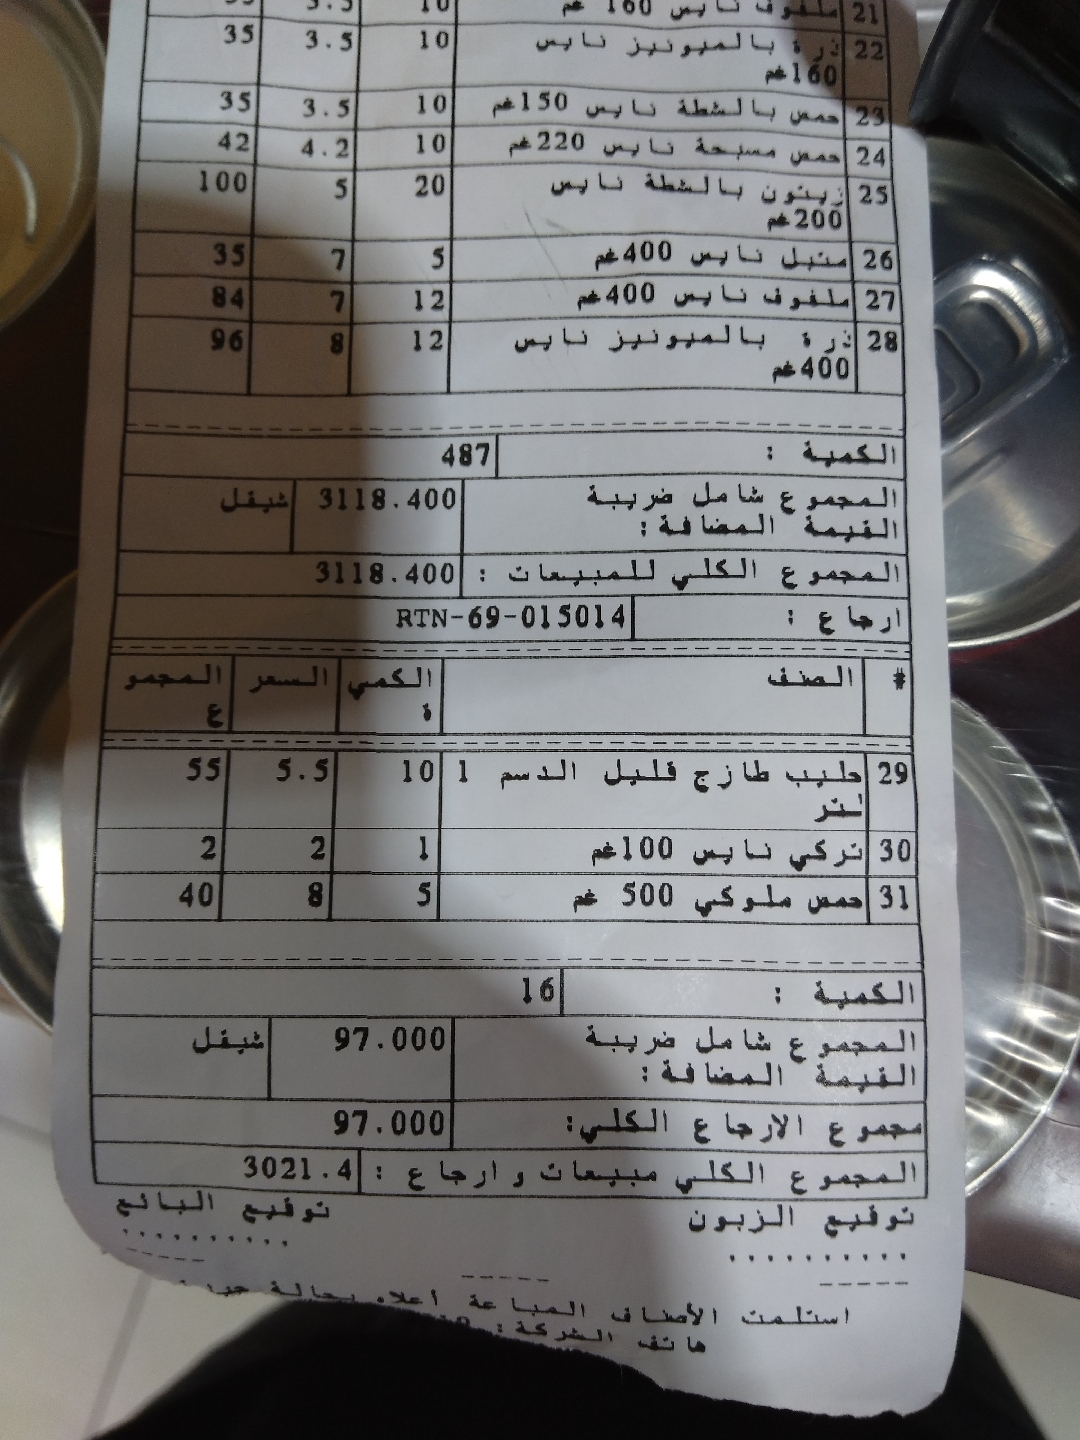 21 ملفوف نايس 160 غم 10 3.5 35
22 ذرة بالميونيز نايس 10 3.5 35
160غم
23 حمص بالشطة نايس 150غم 10 3.5 35
24 حمص مسبحة نايس 220غم 10 4.2 42
25 زيتون بالشطة نايس 20 5 100
200غم
26 متبل نايس 400غم 5 7 35
27 ملفوف نايس 400غم 12 7 84
28 ذرة بالميونيز نايس 12 8 96
400غم
الكمية : 487
المجموع شامل ضريبة 3118.400 شيقل
القيمة المضافة:
المجموع الكلي للمبيعات : 3118.400
ارجاع : RTN-69-015014
# الصنف الكمي السعر المجمو
ة ع
29 حليب طازج قليل الدسم 1 10 5.5 55
لتر
30 تركي نايس 100غم 1 2 2
31 حمص ملوكي 500 غم 5 8 40
الكمية : 16
المجموع شامل ضريبة 97.000 شيقل
القيمة المضافة:
مجموع الارجاع الكلي: 97.000
المجموع الكلي مبيعات و ارجاع : 3021.4
توقيع الزبون توقيع البائع
.......... ..........
استلمت الأصناف المباعة أعلاه بحالة
هاتف الشركة: